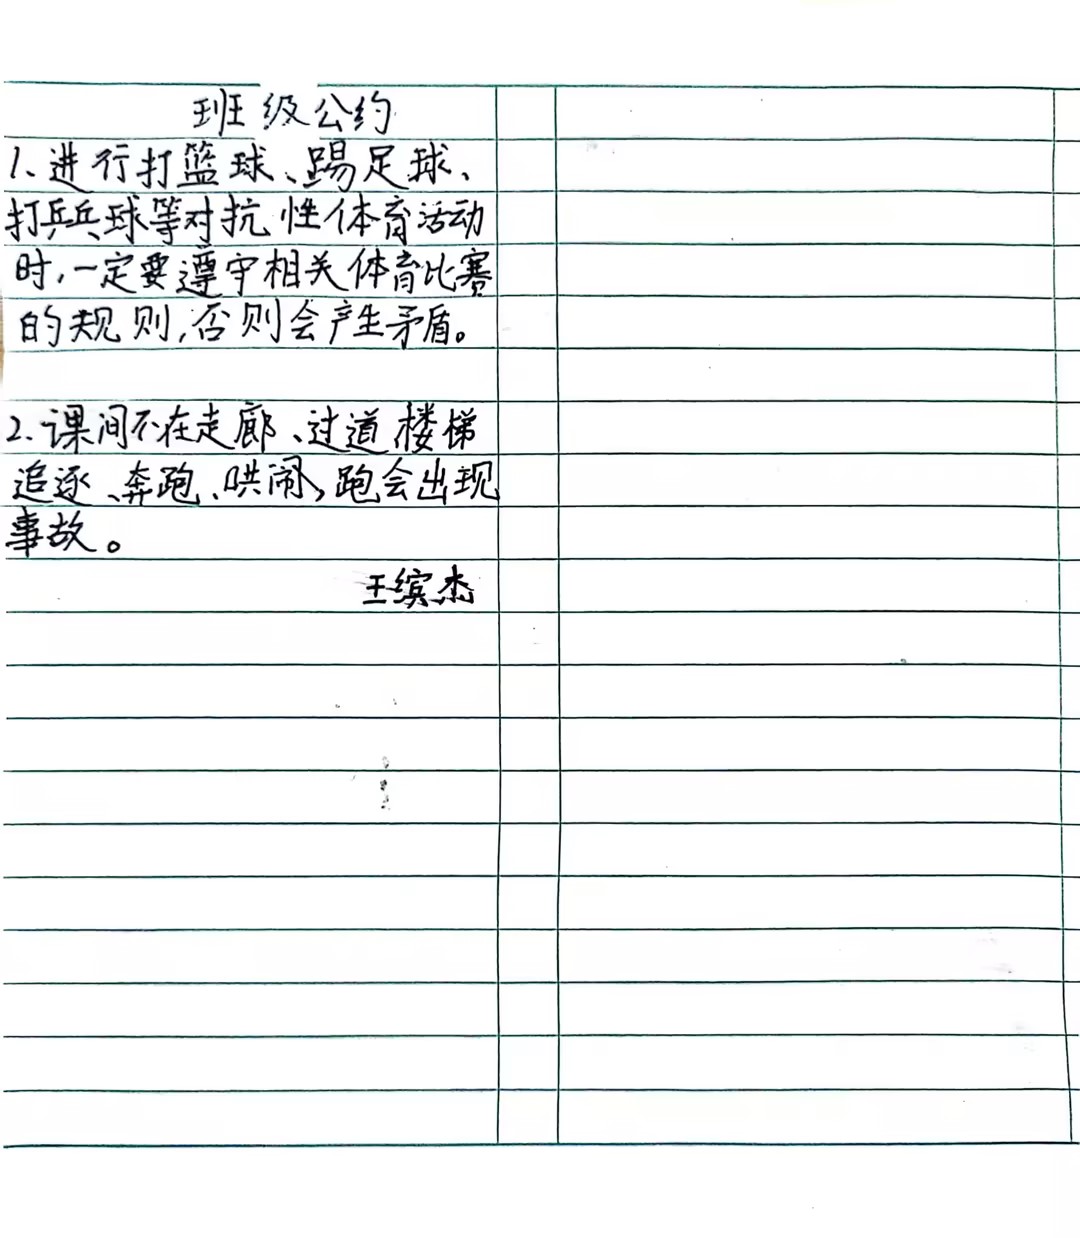 班级公约
1、进行打篮球、踢足球、
打乒乓球等对抗性体育活动
时,一定要遵守相关体育比赛
的规则,否则会产生矛盾。
2.课间不在走廊、过道、楼梯
追逐、奔跑、哄闹,跑会出现
事故。
王缤杰